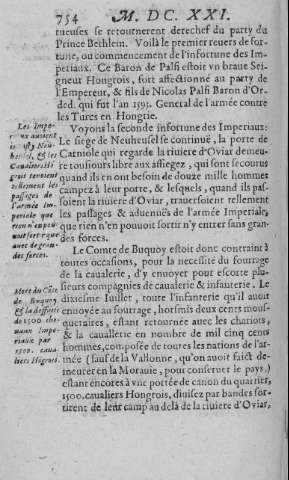 754 M. DC. XXI.
tueuses se retournerent derechef du party du
Prince Bethlein. Voilà le premier reuers de for-
tune, ou commencement de l'infortune des Im-
periaux. Ce Baron de Palfi estoit vn braue Sei-
gneur Hongrois, fort affectionné au party de
l'Empereur, & fils de Nicolas Palfi Baron d'Or-
ded, qui fut l'an 1593. General de l'armée contre
les Turcs en Hongrie.
Voyons la seconde infortune des Imperiaux:
Le siege de Neuheusel se continuë, la porte de
Carniole qui regarde la riuiere d'Oviar demeu-
re tousiours libre aux assiegez, qui sont secourus
quand ils en ont besoin de douze mille hommes
campez à leur porte, & lesquels, quand ils pas-
soient la riuiere d'Oviar, trauersoient tellement
les passages & aduenuës de l'armée Imperiale,
que rien n'en pouuoit sortir n'y entrer sans gran-
des forces.
Les Impe-
riaux
Neu-
tenoient
tellement les
passages de
l'armée Im-
periale que
rien n'en pou-
uoit
auec de gran-
des forces.
Le Comte de Buquoy estoit donc contraint à
toutes occasions, pour la necessité du fourrage
de la caualerie, d'y enuoyer pour escorte plu-
sieurs compagnies de caualerie & infanterie. Le
dixiesme Iuillet, toute l'infanterie qu'il auoit
enuoyée au fourrage, horsmis deux cents mous-
quetaires, estant retournée auec les chariots,
& la caualerie en nombre de mil cinq cens
hommes, composée de toutes les nations de l'ar-
mée (sauf de la Vallonne, qu'on auoit faict de-
meurer en la Morauie, pour conseruer le pays,)
estant encores à vne portée de canon du quartier,
1500. caualiers Hongrois, diuisez par bandes sor-
tirent de leur camp au delà de la riuiere d'Oviar,
Mort du Cōte
de Buquoy,
& la desfaicte
de 1500. che-
uaux Impe-
riaux par
1500. caua-
liers Hōgrois.